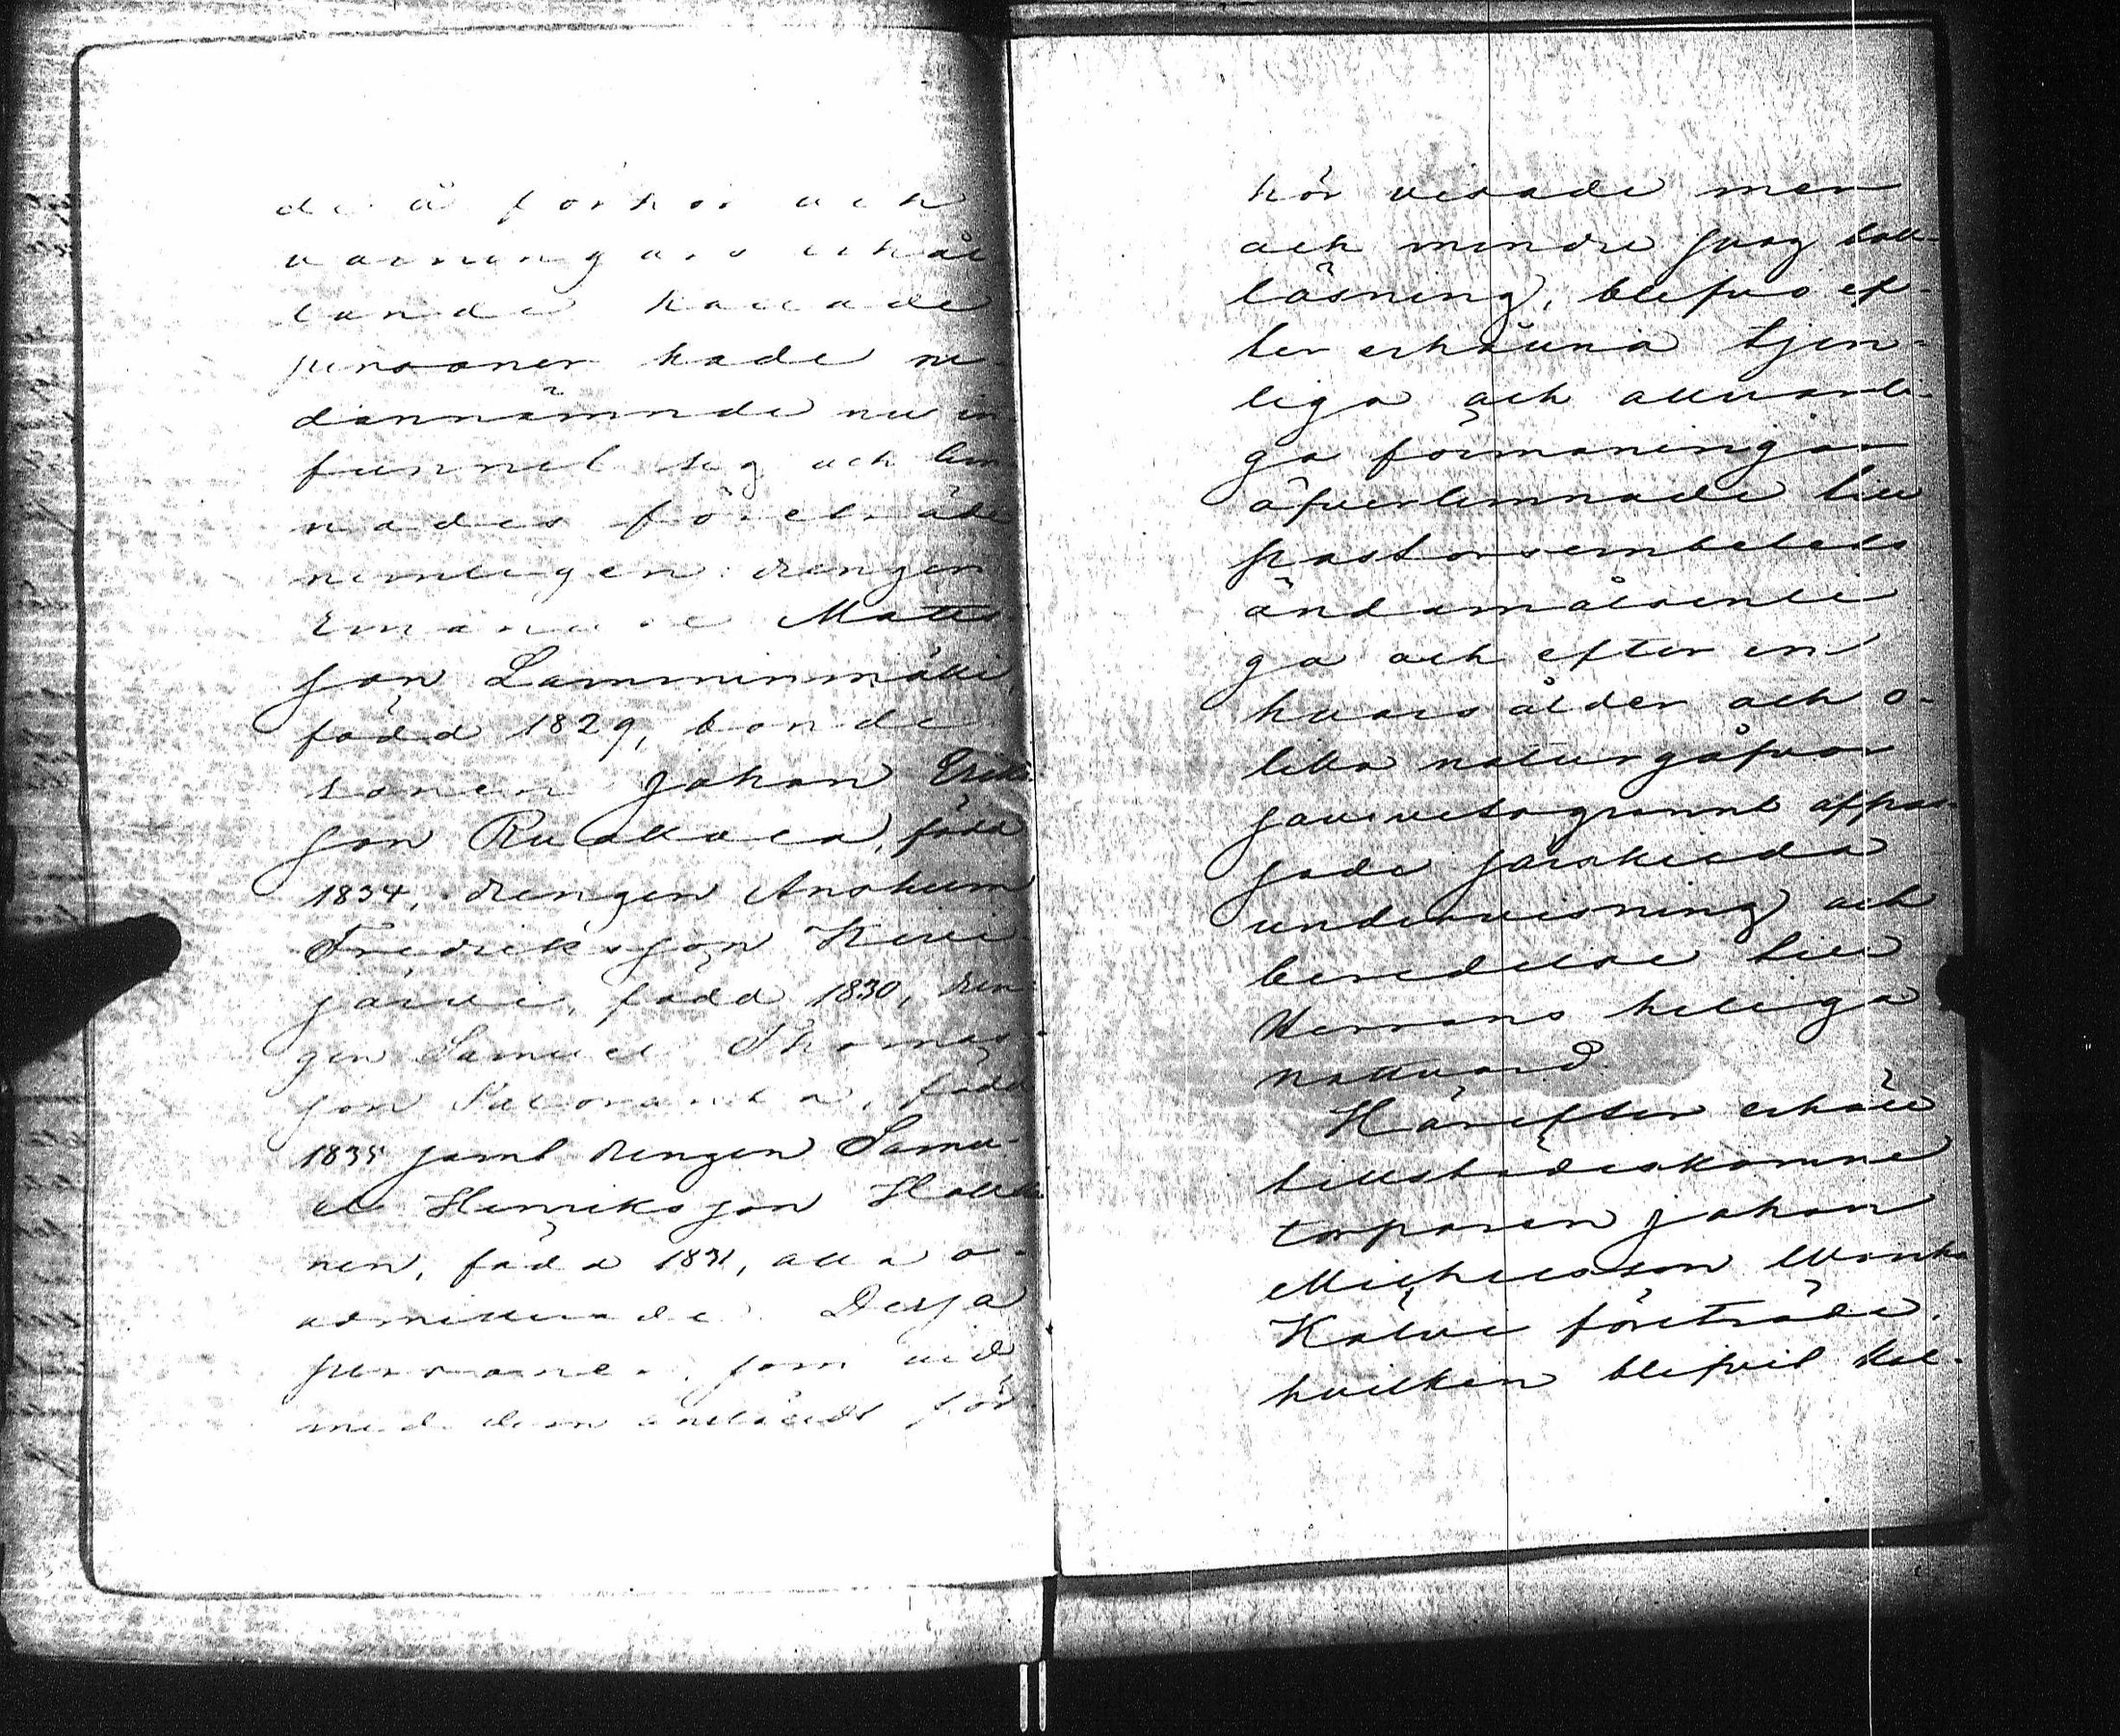 de å förhör och
varningars erhål
lande kallade
personer hade ne-
dannämnde nu in-
funnet sig och lem
nades företräde
nemligen: drengen
Emanuel Matts
son Lamminmäki,
född 1829, bonde
sonen Johan Eriks-
son Ruokkala, född
1834, drengen Anshelm
Fredriksson Kivi
järvi, född 1830, dren-
gen Samuel Thomas-
son Saloranta, född
1835 samt drengen Samu-
el Henriksson
nen, född 1831, alla o-
admitterade. Dessa
personer, som vid
med dem anstäldt för
hör visade mer
och mindre svag bok-
läsning, blefvo ef-
ter erhållna tjen-
liga och allvarli-
ga förmaningar
öfverlemnade till
pastorsembetets
ändamålsenli
ga och efter en
hvars ålder och o-
lika naturgåfvor
samvetsgrannt afpas-
sade särskilda
undervisning och
beredelse till
Herrans heliga
nattvard.
Härefter erhöll
tillstädeskomne
torparen Johan
Michelsson
Kalvi företräde,
hvilken blifvit kal-